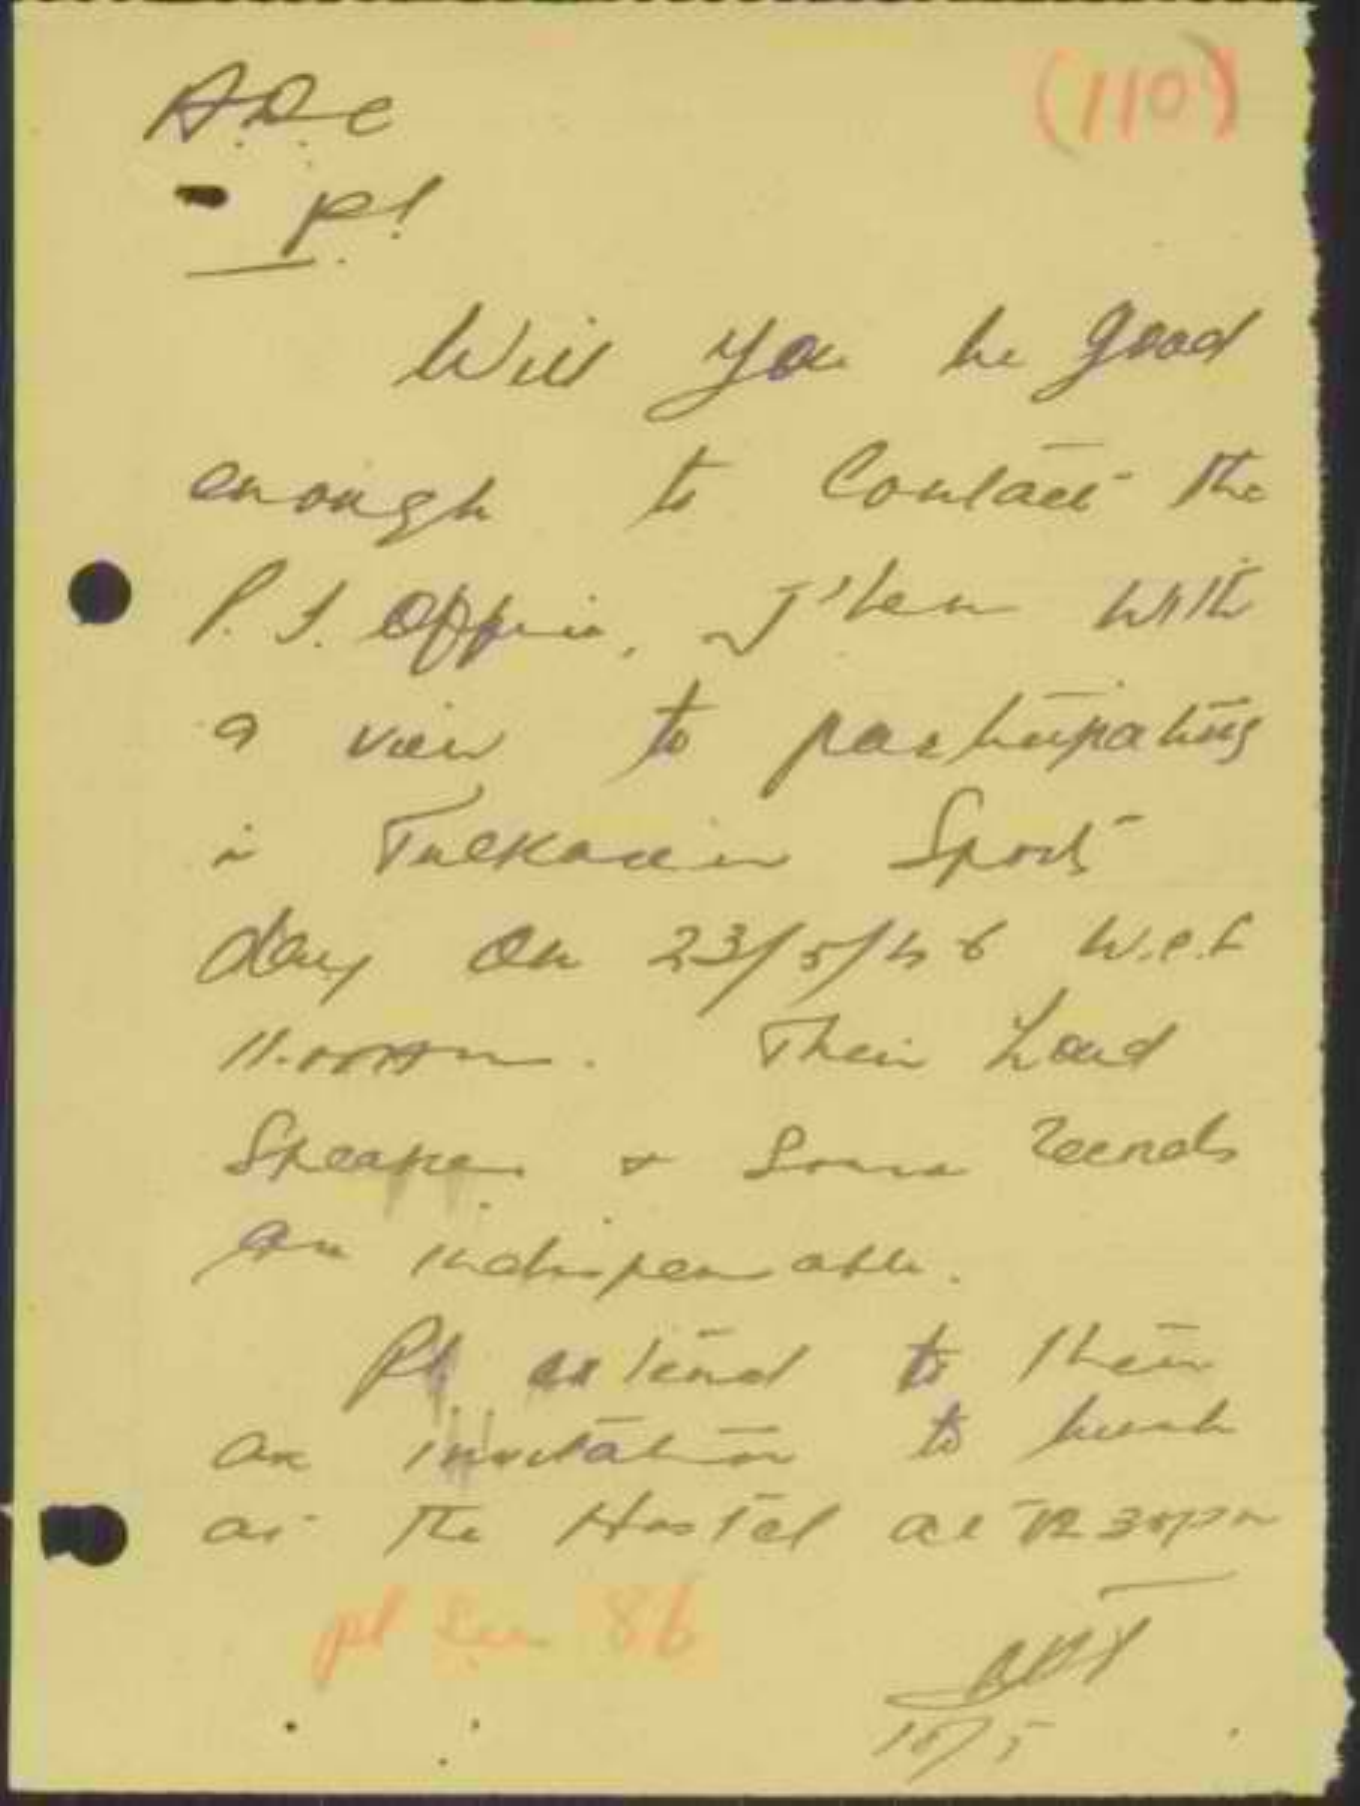 (110)
A.D.C
- pl.
Will you be good
enough to Contact the
P.I. Office, J'lem with
a view to participating
in Tulkarm Sports
day on 23/5/46 w.e.f
11.00 Am. Their Loud
Speaker & Some records
are indispensable.
Pl extend to them
an invitation to lunch
at the Hostel at 12.30 pm
pl see 86